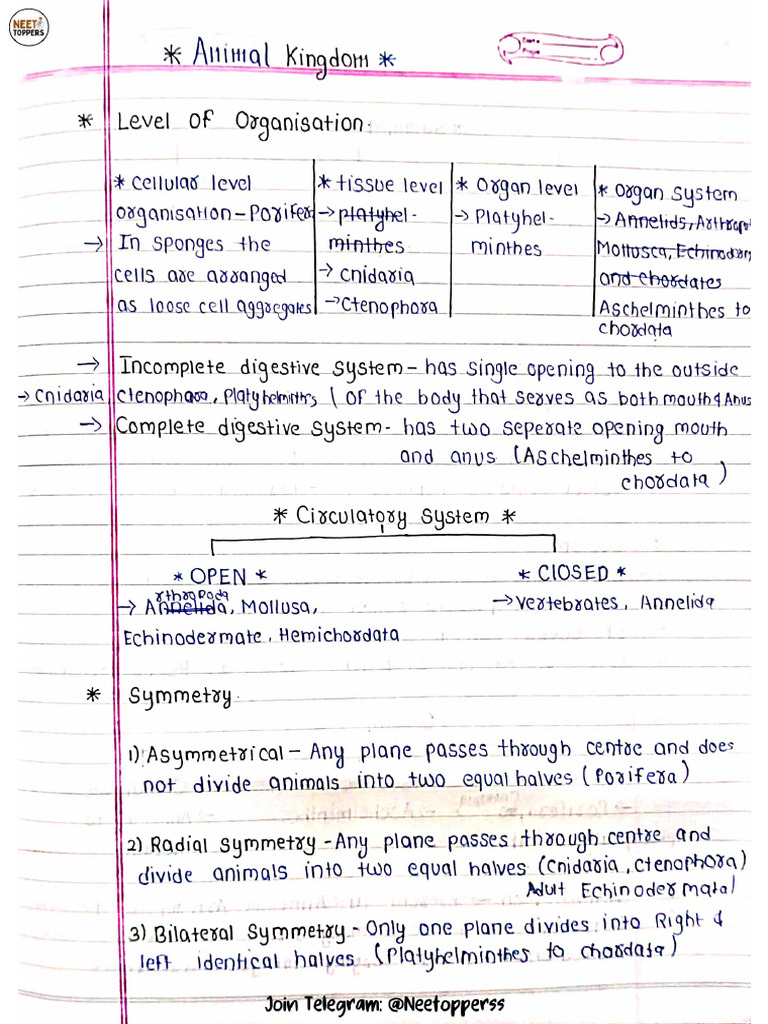 NEET
TOPPERS
* Animal Kingdom *
* Level Of Organisation.
* Cellular level
organisation - Porifera
→ In sponges the
cells are arranged
as loose cell aggregates
* tissue level
→ platyhel-
minthes
→ Cnidaria
→ Ctenophora
* Organ level
→ Platyhel-
minthes
* Organ System
→ Annelids, Arthrapo
Mollusca, Echinoderm
and chordates
Aschelminthes to
chordata
→ Incomplete digestive system - has single opening to the outside
→ Cnidaria, Ctenophora, Platyhelminths, ( of the body that serves as both mouth & Anus
→ Complete digestive system - has two seperate opening mouth
and anus (Aschelminthes to
chordata)
* Circulatory System *
* OPEN *
→ Annelida rthropoda, Mollusa,
Echinodermate, Hemichordata
* ClOSED *
→ Vertebrates, Annelida
* Symmetry.
1) Asymmetrical - Any plane passes through centre and does
not divide animals into two equal halves (Porifera)
2) Radial Symmetry - Any plane passes through centre and
divide animals into two equal halves (Cnidaria, Ctenophora)
Adut Echinodermata)
3) Bilateral Symmetry - Only one plane divides into Right &
left identical halves (Platyhelminthes to chordata)
Join Telegram: @Neetopperss